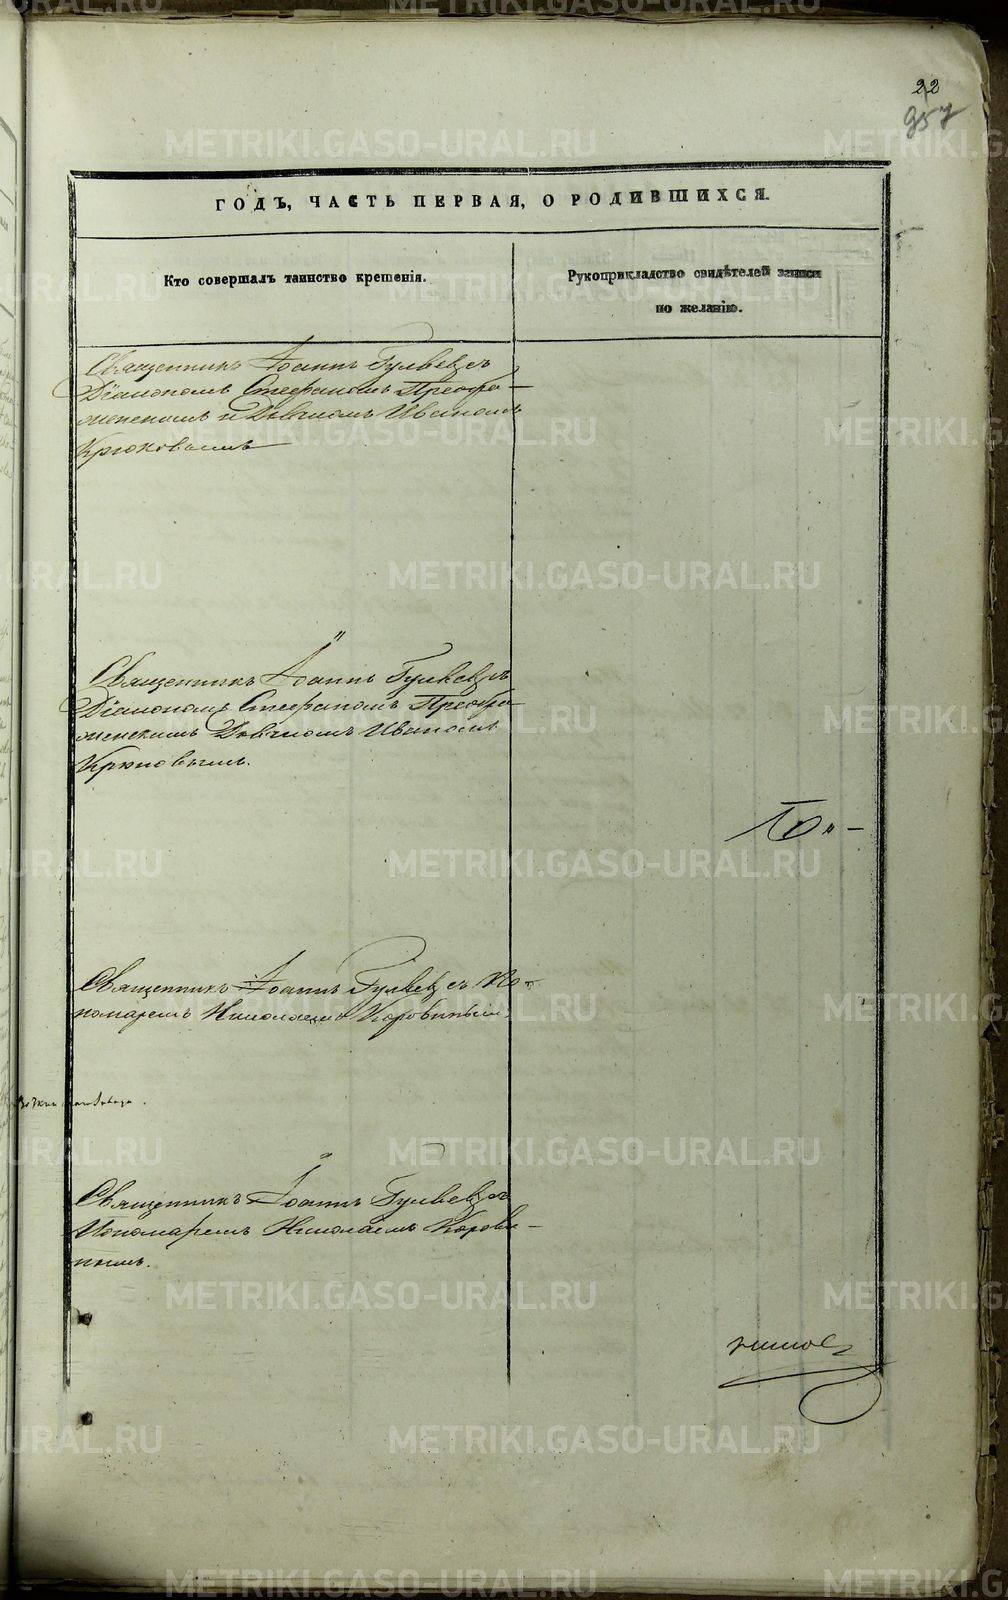 22
957
ГОДЪ, ЧАСТЬ ПЕРВАЯ, О РОДИВШИХСЯ.
Кто совершалъ таинство крещенія.
Рукоприкладство свидѣтелей записи
по желанію.
Священникъ Іоаннъ Гулвевъ съ
Діакономъ Стефаномъ Преобра-
женскимъ и Дьячкомъ Иваномъ
Крюковымъ
Священникъ Іоаннъ съ
Діакономъ Стефаномъ Преобра-
женскимъ Дьячкомъ Иваномъ
Крюковымъ.
Священникъ Іоаннъ съ По-
номаремъ Николаемъ Коровинымъ.
Священникъ Іоаннъ съ
Пономаремъ Николаемъ Корови-
нымъ.
METRIKI.GASO-URAL.RU